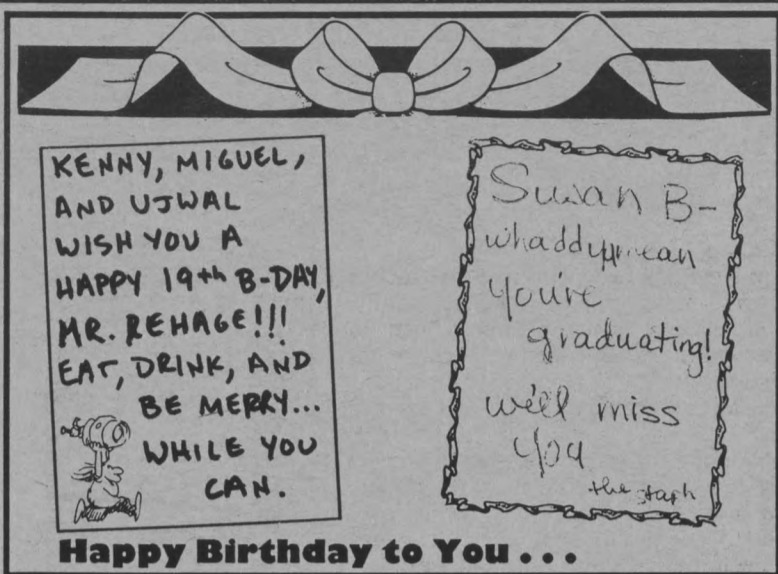 KENNY, MIGUEL,
AND UJWAL
WISH YOU A
HAPPY 19th B-DAY,
MR. REHAGE!!!
EAT, DRINK, AND
BE MERRY...
WHILE YOU
CAN.
Susan B-
whaddyamean
you're
graduating!
we'll miss
you
the staph
Happy Birthday to You . . .